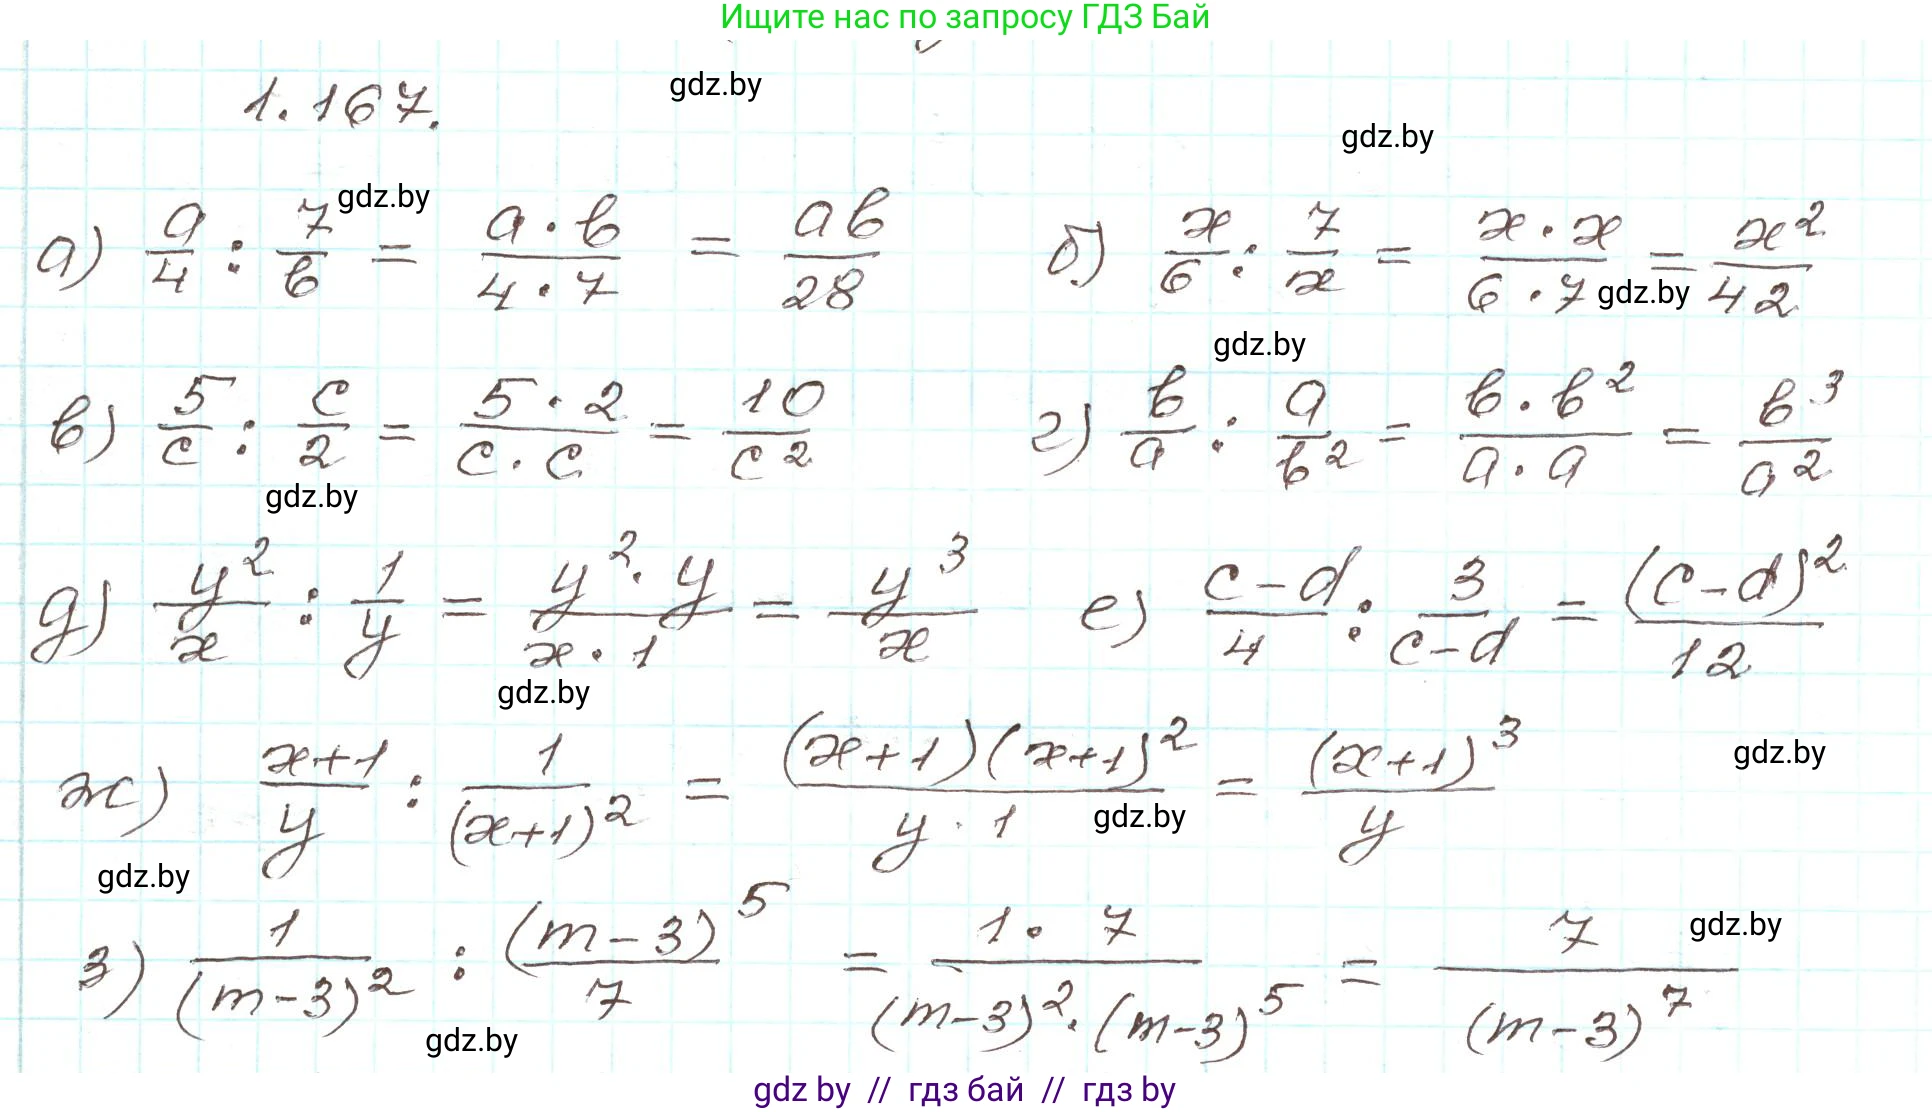 Ищите нас по запросу ГДЗ Бай
1.167. gdz.by
gdz.by
а) a/4 : 7/b = a·b/4·7 = ab/28 gdz.by б) x/6 : 7/x = x·x/6·7 = x²/42 gdz.by
gdz.by
в) 5/c : c/2 = 5·2/c·c = 10/c² г) b/a : a/b² = b·b²/a·a = b³/a²
gdz.by
д) y²/x : 1/y = y²·y/x·1 = y³/x е) c-d/4 : 3/c-d = (c-d)²/12
gdz.by
ж) x+1/y : 1/(x+1)² = (x+1)(x+1)²/y·1 = (x+1)³/y gdz.by
gdz.by
gdz.by
з) 1/(m-3)² : (m-3)⁵/7 = 1·7/(m-3)²·(m-3)⁵ = 7/(m-3)⁷ gdz.by
gdz.by
gdz by // гдз бай // гдз by